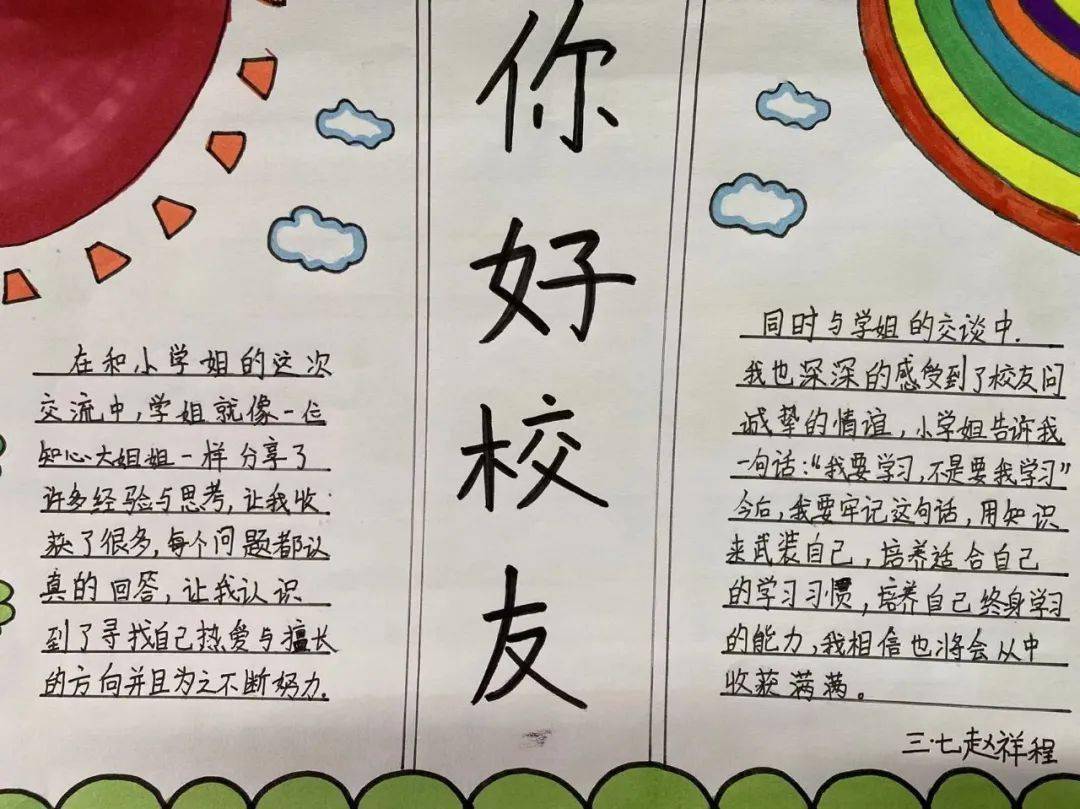 你好校友
在和小学姐的这次
交流中，学姐就像一位
知心大姐姐一样分享了
许多经验与思考，让我收
获了很多，每个问题都认
真的回答，让我认识
到了寻找自己热爱与擅长
的方向并且为之不断努力.
同时与学姐的交谈中.
我也深深的感受到了校友问
诚挚的情谊，小学姐告诉我
一句话：“我要学习，不是要我学习”
今后，我要牢记这句话，用知识
来武装自己，培养适合自己
的学习习惯，培养自己终身学习
的能力，我相信也将会从中
收获满满。
三·七赵祥程